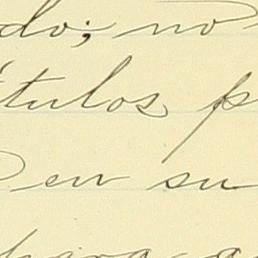 do; no
ítulos p
en su